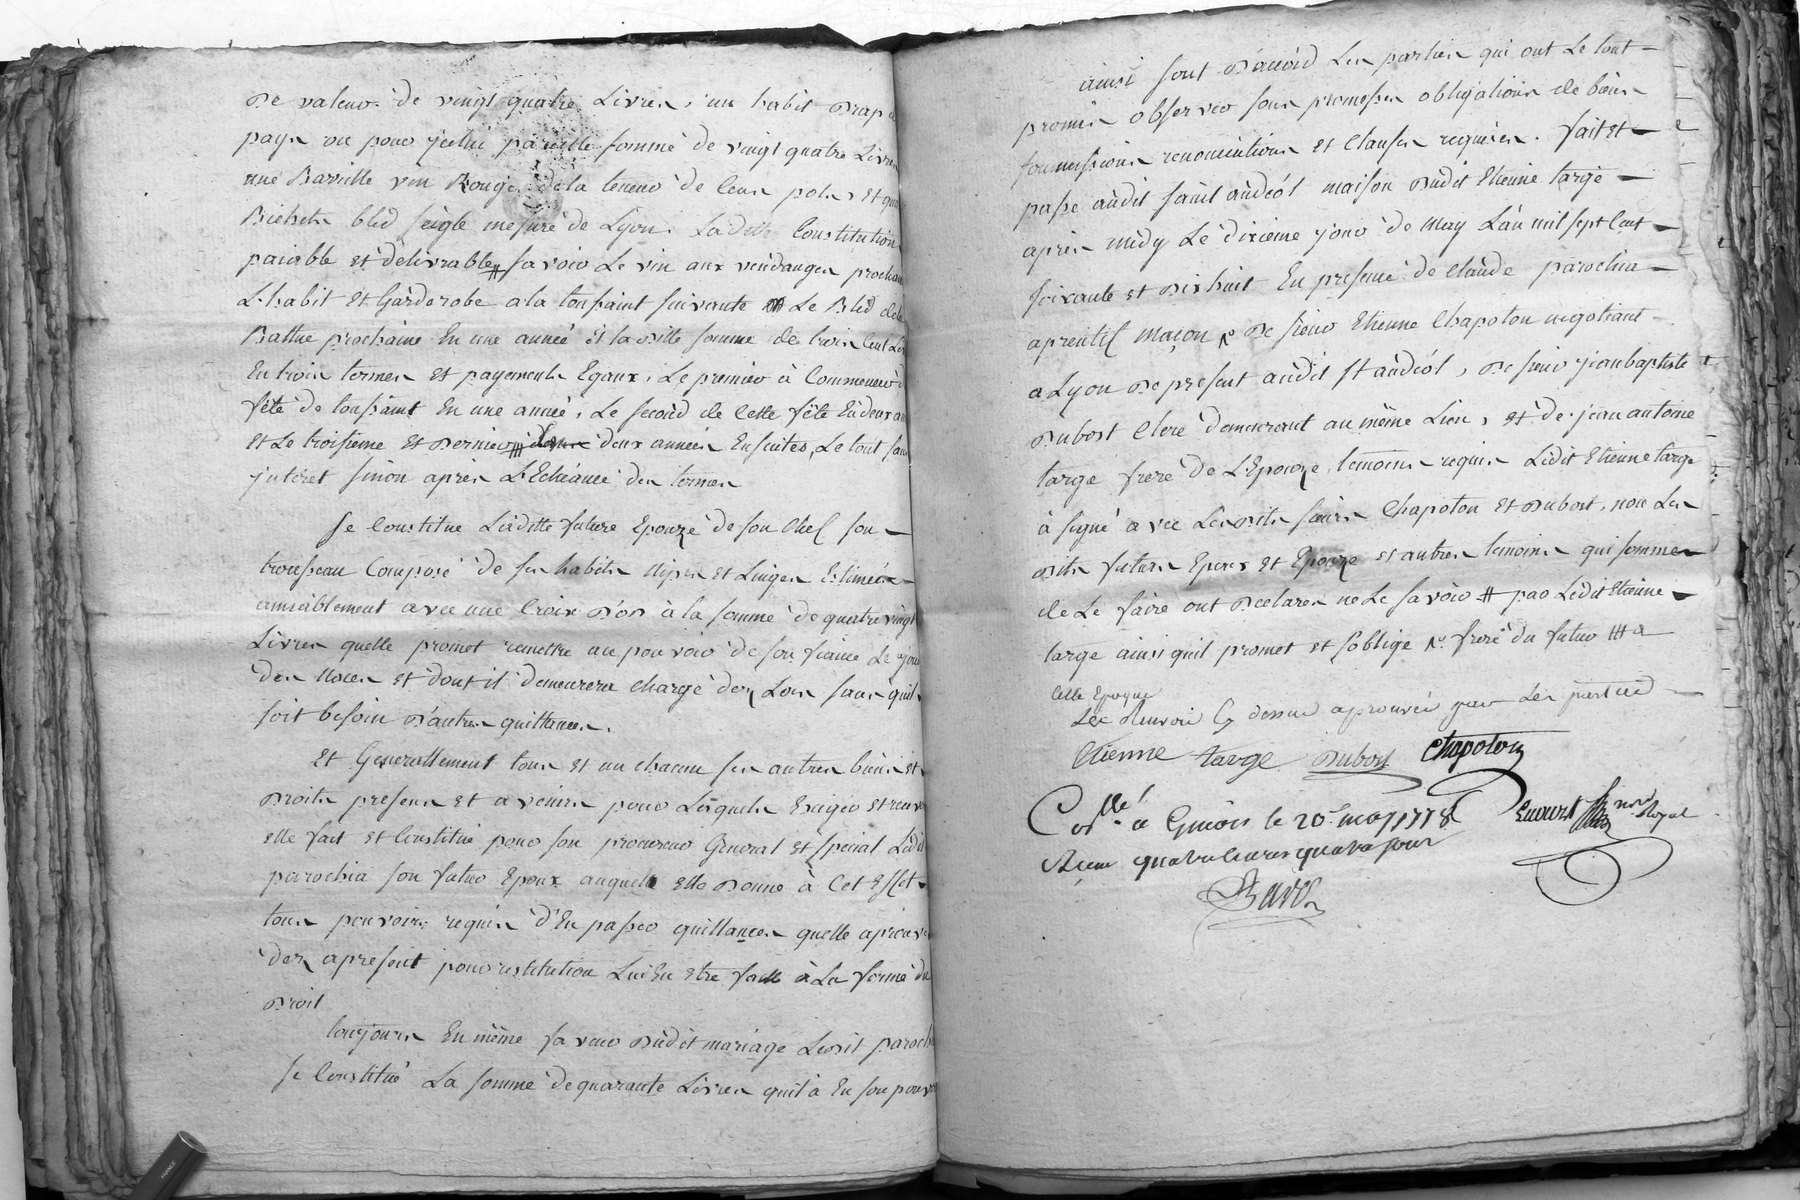 De valeur de vingt quatre Livres, un habit Drap
pays ou pour jcelui pareille somme de vingt quatre Livres
une Barielle vin Rouge de la teneur de Cent pots, et
Bichets bled seigle mesure de Lyon. Laditte Constitution
paiable et délivrable # savoir Le vin aux vendanges prochaines
L'habit et Garderobe a la toussaint suivante Le Bled
Battue prochaine En une année et la ditte somme de trois Cent
En trois termes et payements Egaux, Le premier à Commencer
fête de toussaint En une année, Le second de Cette fête En deux ans
et Le troisieme et Dernier deux années Ensuites, Le tout sans
jnteret sinon après L'Echéance des termes
Se Constitue Laditte future Epouze de son Chef son
trousseau Composé de ses habits nipes et Linges Estimés
amiablement avec une Croix D'or à la somme de quatre vingt
Livres quelle promet remettre au pouvoir de son fiancé Le jour
des Noces et dont il demeurera chargé dez Lors sans quil
soit besoin D'autres quittances.
Et Generallement tous et un chacun ses autres biens et
Droits presens et avenirs pour Lesquels Exiger et
elle fait et Constitue pour son procureur General et special Ledit
parochia son futur Epoux auquel elle Donne à Cet Effet
tous pouvoirs requis d'En passer quittances quelle
dez apresent pour restitution Lui En etre faitte à La forme du
Droit
toujours En même faveur Dudit mariage Ledit parochia
se Constitue La somme de quarante Livres quil a En son pouvoir
ainsi sont D'accord Les parties qui ont Le tout
promis observer sous promesses obligations de biens
soumissions renonciations et Clauses requises. fait et
passé audit saint andéol maison Dudit Etienne targe
après midy Le dixieme jour de May L'an mil sept Cent
soixante et Dixhuit En presence de Claude parochia
aprentif maçon De sieur Etienne Chapoton negotiant
a Lyon De present audit St andéol, De sieur jeanbaptiste
Dubost Clerc demeurant au même Lieu, et de jean antoine
targe frere de L'Epouze temoins requis Ledit Etienne targe
à signé avec Lesdits sieurs Chapoton et Dubost, non Les
Dits futurs Epoux et Epouze et autres temoins qui sommés
de Le faire ont Declarés ne Le savoir # par Ledit Etienne
targe ainsi quil promet et s'oblige frere du futur a
Cette Epoque
Les Renvois Cy dessus aprouvés par Les parties
Etienne targe Dubost Chapoton
Collé a Givors le 20 may 1778
Recu quatre livres quatre sous
nore Royal